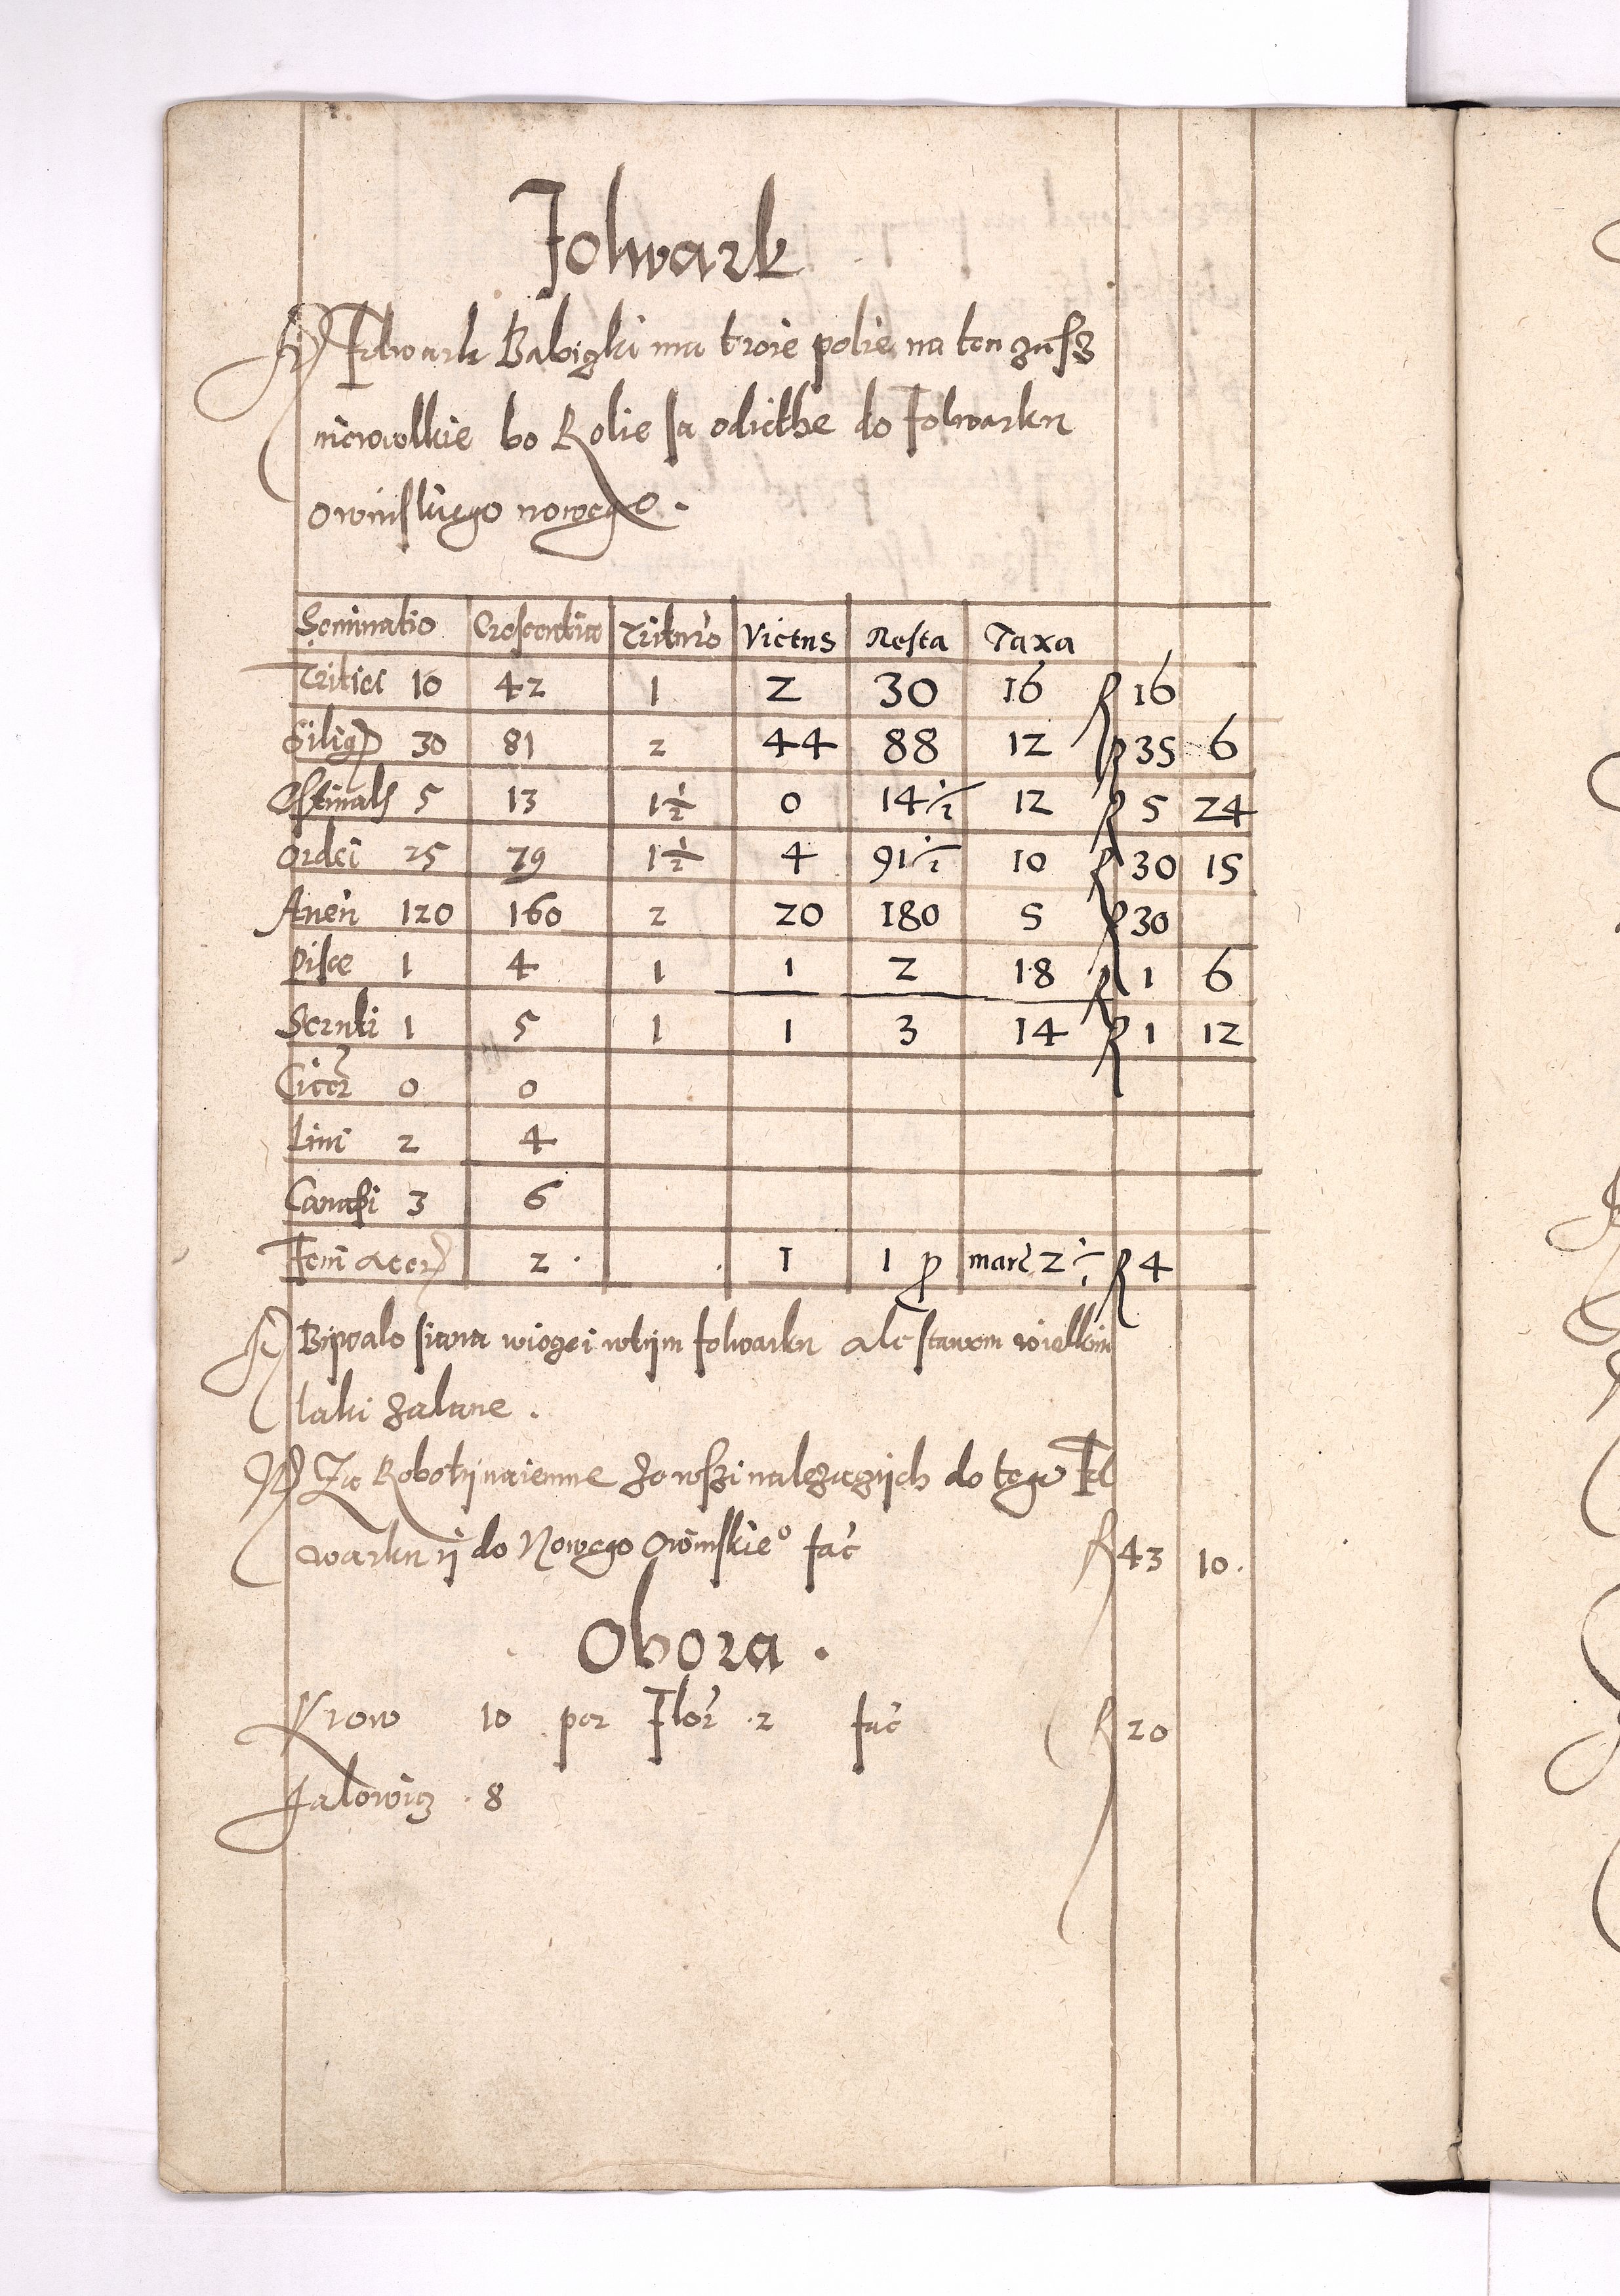 Folwark
Folwark Babiczki ma troie polie na ten czasz
niewolkie bo Rolie sa odiethe do Folwarku
owinskiego nowego .
Seminatio Crescentia Triturō Victus Resta Taxa
Tritici 10 42 1 2 30 16 R 16
Silig 30 81 2 44 88 12 R 35 6
Estiuals 5 13 1½ 0 14½ 12 R 5 24
Ordei 25 79 1½ 4 91½ 10 R 30 15
Auen 120 160 2 20 180 5 R 30
Pise 1 4 1 1 2 18 R 1 6
Seruti 1 5 1 1 3 14 R 1 12
Cicer 0 0
Lini 2 4
Canapi 3 6
Feni acer 2 . 1 1 p marc 2 R 4
Bywalo siana wiecei wtym folwarku ale stawem wielkim
laki zalane .
Za Roboty naiemne ze wszi nalezaczych do tego Fol
warku y do Nowego Owinskie° fac̄ R 43 10 .
Obora .
Krow 10 per Flor 2 fac̄ R 20
Jalowicz . 8